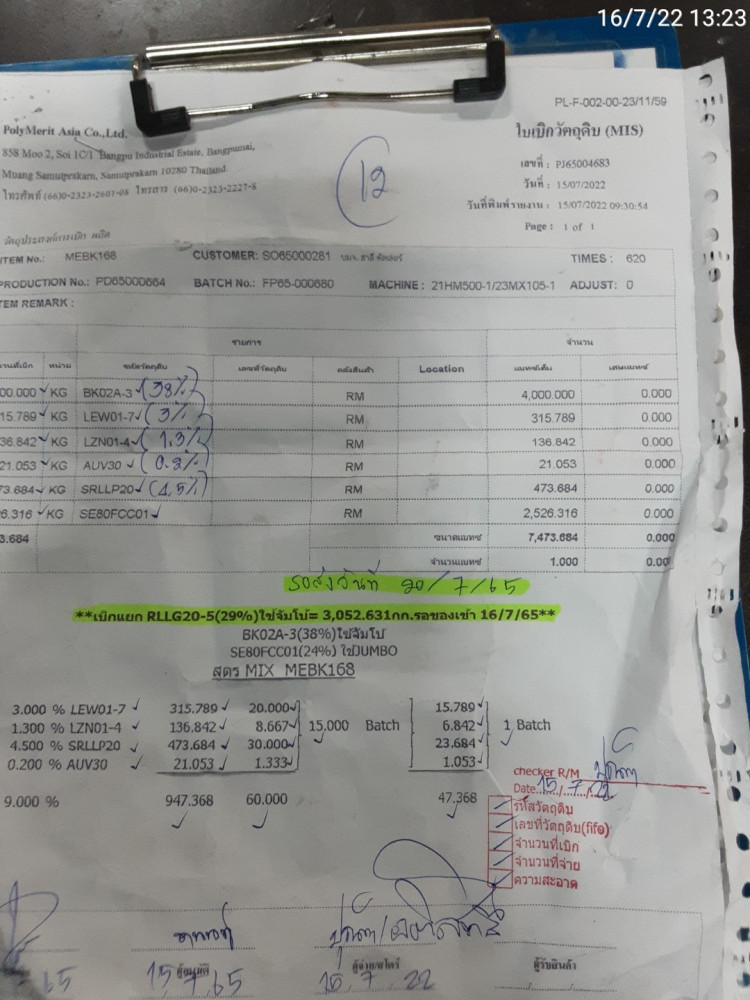 16/7/22 13:23
PL-F-002-00-23/11/59
PolyMerit Asia Co.,Ltd.
ใบเบิกวัตถุดิบ (MIS)
858 Moo 2, Soi 1C/1 Bangpu Industrial Estate, Bangpumai,
เลขที่ : PJ65004683
Muang Samutprakarn, Samutprakarn 10280 Thailand.
วันที่ : 15/07/2022
โทรศัพท์ (66)0-2323-2607-08 โทรสาร (66)0-2323-2227-8
วันที่พิมพ์รายงาน : 15/07/2022 09:30:54
12
Page : 1 of 1
วัตถุประสงค์การเบิก ผลิต
ITEM No.: MEBK168 CUSTOMER: SO65000281 TIMES : 620
PRODUCTION No.: PD65000664 BATCH No.: FP65-000680 MACHINE : 21HM500-1/23MX105-1 ADJUST: 0
ITEM REMARK :
รายการ จำนวน
หน่วย รหัสวัตถุดิบ เลขที่วัตถุดิบ คลังสินค้า Location แบทช์เต็ม เศษแบทช์
00.000 KG BK02A-3 (38%) RM 4,000.000 0.000
15.789 KG LEW01-7 (3%) RM 315.789 0.000
36.842 KG LZN01-4 (1.3%) RM 136.842 0.000
21.053 KG AUV30 (0.2%) RM 21.053 0.000
73.684 KG SRLLP20 (4.5%) RM 473.684 0.000
6.316 KG SE80FCC01 RM 2,526.316 0.000
3.684 ขนาดแบทช์ 7,473.684 0.000
จำนวนแบทช์ 1.000 0.00
รอส่งวันที่ 20/7/65
**เบิกแยก RLLG20-5(29%)ใช่จัมโบ้= 3,052.631กก.รอของเข้า 16/7/65**
BK02A-3(38%)ใช่จัมโบ้
SE80FCC01(24%) ใช้JUMBO
สูตร MIX MEBK168
3.000 % LEW01-7 315.789 20.000 15.789
1.300 % LZN01-4 136.842 8.667 15.000 Batch 6.842 1 Batch
4.500 % SRLLP20 473.684 30.000 23.684
0.200 % AUV30 21.053 1.333 1.053
9.000 % 947.368 60.000 47.368
checker R/M
Date 15/7/22
รหัสวัตถุดิบ
เลขที่วัตถุดิบ(fifo)
จำนวนที่เบิก
จำนวนที่จ่าย
ความสะอาด
ผู้อนุมัติ ผู้จ่าย/สโตร์ ผู้รับสินค้า
65 15/7/65 15/7/22